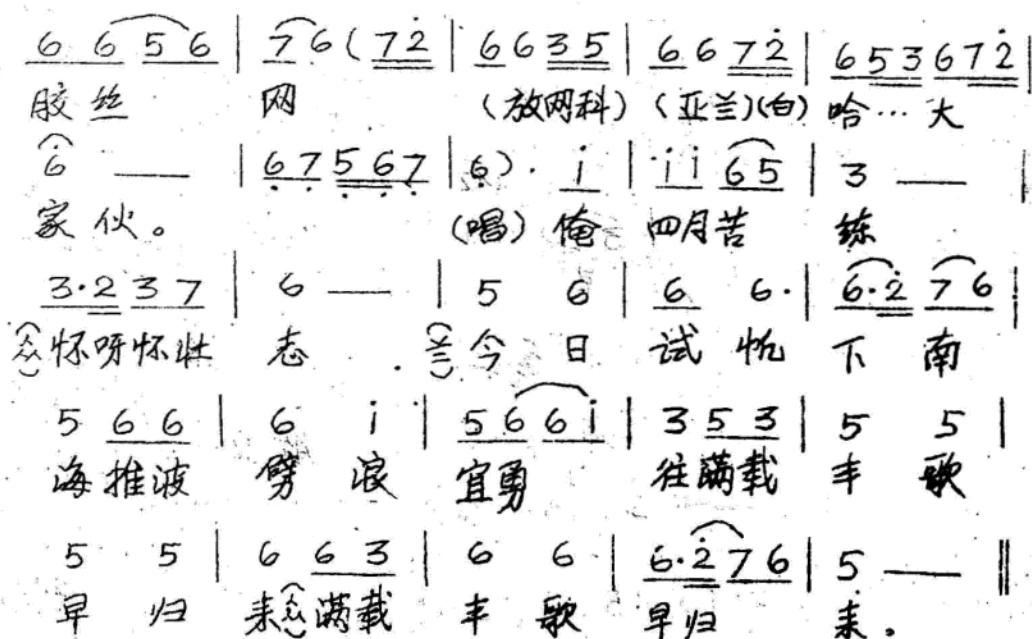 6 6 5 6 | 7 6 ( 7 2̇ | 6 6 3 5 | 6 6 7 2̇ | 6 5 3 6 7 2̇ |
胶丝 网 (放网科) (亚兰)(白) 哈… 大
6 — | 6̣ 7̣ 5̣ 6̣ 7̣ | 6̣ ) · i̇ | i̇ i̇ 6 5 | 3 — |
家伙。 (唱) 俺 四月苦 练
3·2 3 7 | 6 — | 5 6 | 6 6· | 6·2̇ 7 6 |
(众)怀呀怀壮 志. (兰)今 日 试 帆 下 南
5 6 6 | 6 i̇ | 5 6 6 i̇ | 3 5 3 | 5 5 |
海推波 劈 浪 宜勇 往满载 丰 歌
5 5 | 6 6 3 | 6 6 | 6·2̇ 7 6 | 5 — ‖
早 归 来(众)满载 丰 歌 早归 来。